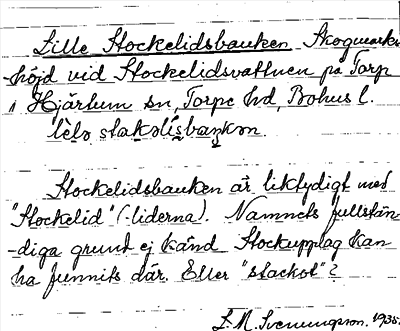 Lille Stockelidsbauken Skogmarks-
-höjd vid Stockelidsvattnen på Torp
i Hjärtum sn, Torpe hd, Bohus l.
Stockelidsbauken är liktydigt med
"Stockelid" (-liderna). Namnets fullstän-
-diga grund ej känd Stockupplag kan
ha funnits där. Eller "stackot"?
1935.